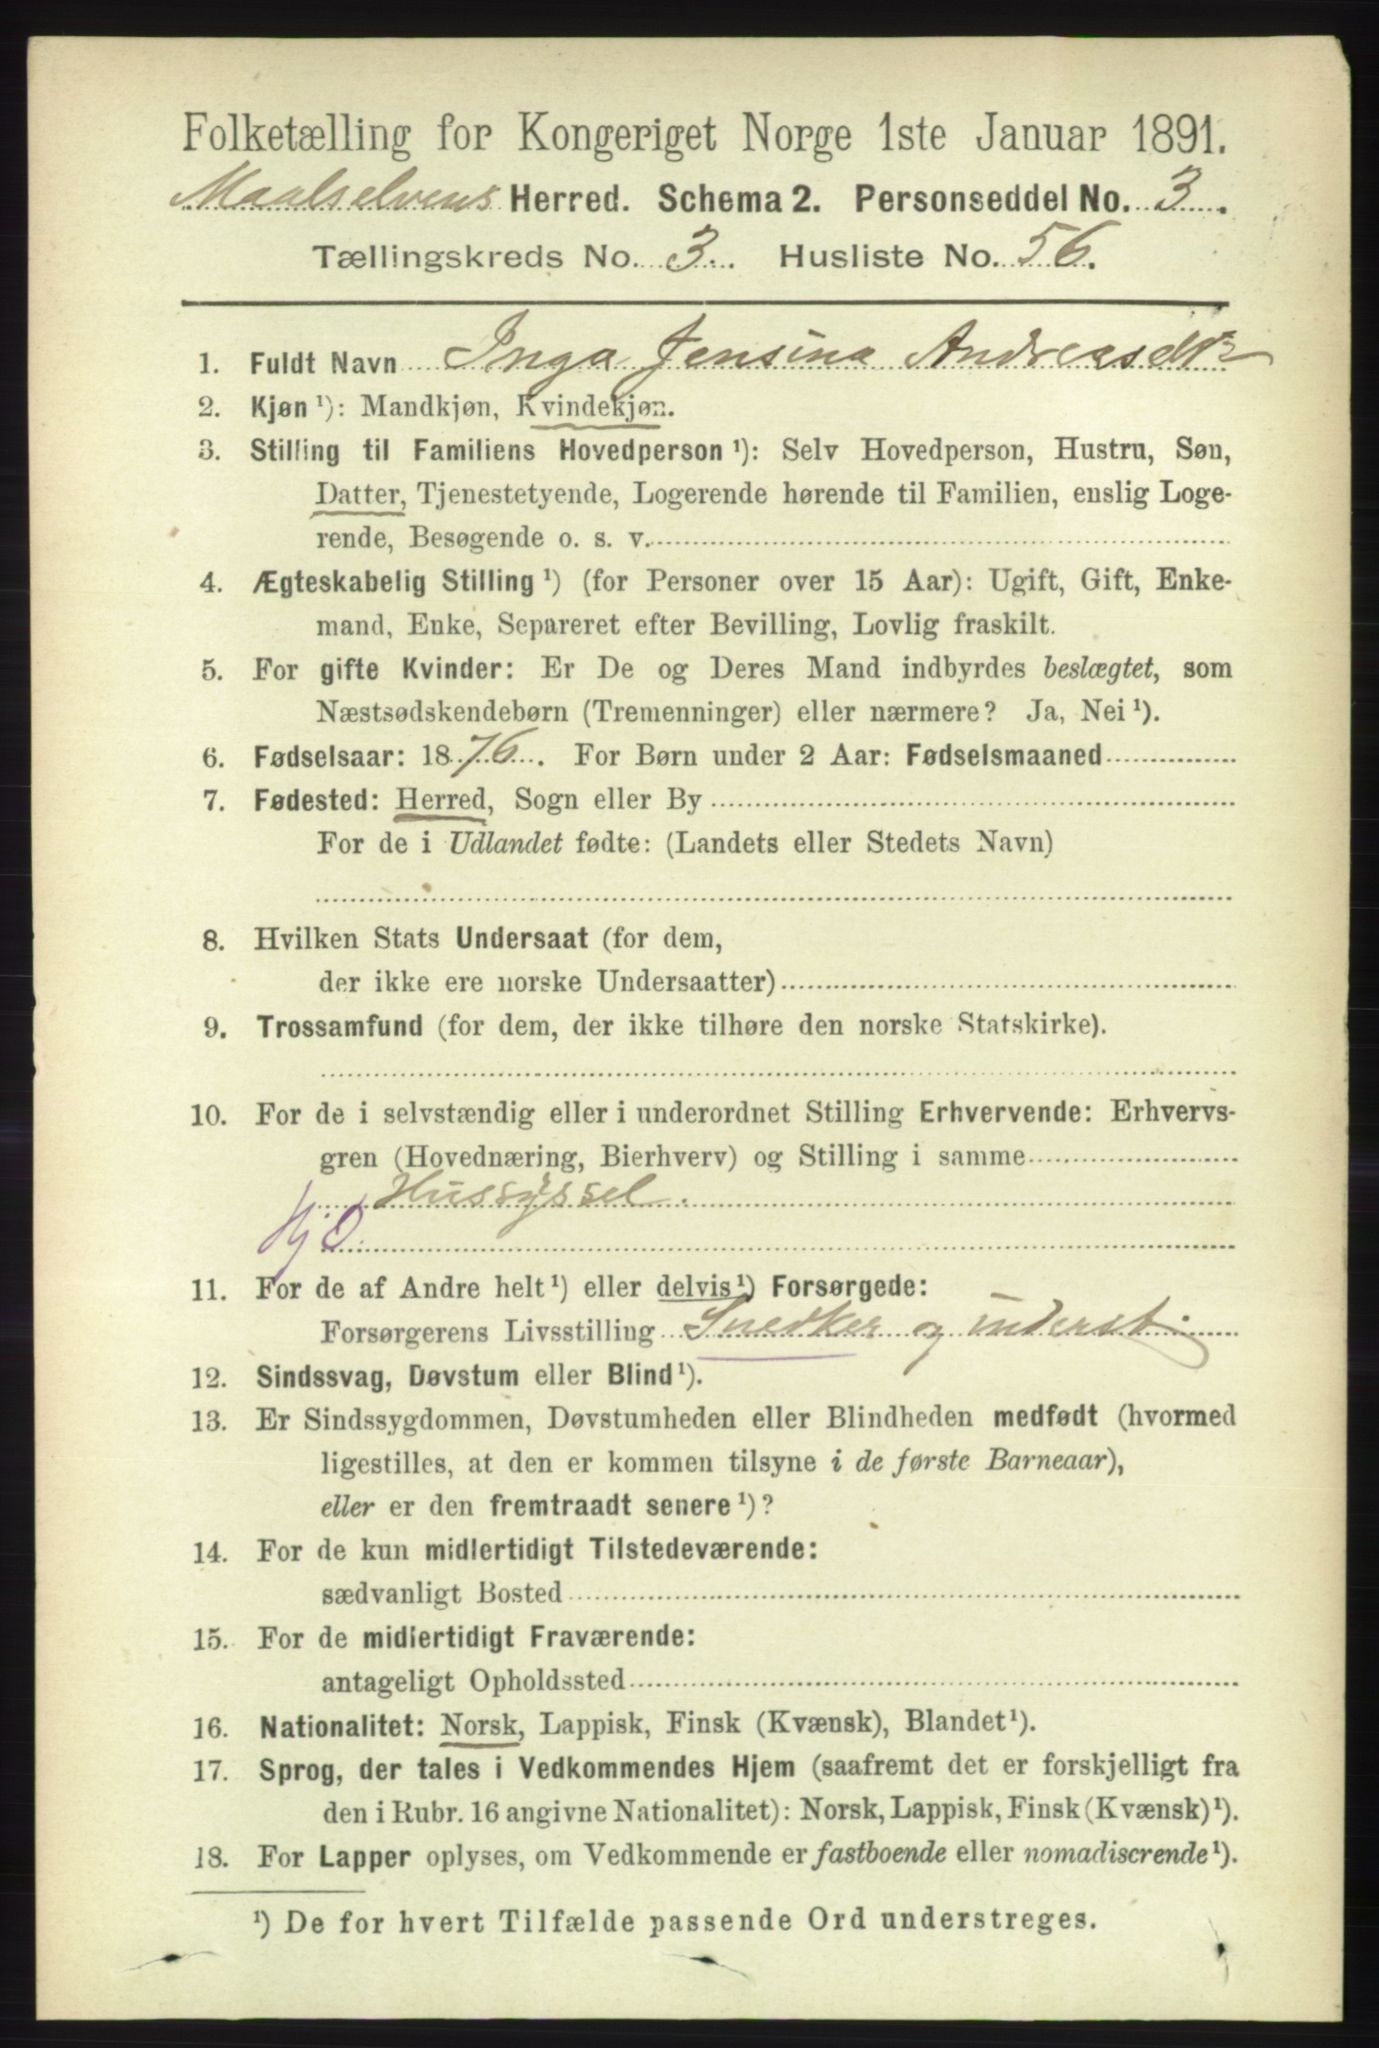 Folketælling for Kongeriget Norge 1ste Januar 1891.
Maalselvens Herred. Schema 2. Personseddel No. 3.
Tællingskreds No. 3. Husliste No. 56.
1. Fuldt Navn Inga Jensina Andreasdtr
2. Kjøn ¹): Mandkjøn, Kvindekjøn.
3. Stilling til Familiens Hovedperson ¹): Selv Hovedperson, Hustru, Søn,
Datter, Tjenestetyende, Logerende hørende til Familien, enslig Loge-
rende, Besøgende o. s. v.
4. Ægteskabelig Stilling ¹) (for Personer over 15 Aar): Ugift, Gift, Enke-
mand, Enke, Separeret efter Bevilling, Lovlig fraskilt.
5. For gifte Kvinder: Er De og Deres Mand indbyrdes beslægtet, som
Næstsødskendebørn (Tremenninger) eller nærmere? Ja, Nei ¹).
6. Fødselsaar: 1876. For Børn under 2 Aar: Fødselsmaaned
7. Fødested: Herred, Sogn eller By
For de i Udlandet fødte: (Landets eller Stedets Navn)
8. Hvilken Stats Undersaat (for dem,
der ikke ere norske Undersaatter)
9. Trossamfund (for dem, der ikke tilhøre den norske Statskirke).
10. For de i selvstændig eller i underordnet Stilling Erhvervende: Erhvervs-
gren (Hovednæring, Bierhverv) og Stilling i samme
Hussyssel.
Hj O
11. For de af Andre helt ¹) eller delvis ¹) Forsørgede:
Forsørgerens Livsstilling Snedker og inderst.
12. Sindssvag, Døvstum eller Blind ¹).
13. Er Sindssygdommen, Døvstumheden eller Blindheden medfødt (hvormed
ligestilles, at den er kommen tilsyne i de første Barneaar),
eller er den fremtraadt senere ¹)?
14. For de kun midlertidigt Tilstedeværende:
sædvanligt Bosted
15. For de midlertidigt Fraværende:
antageligt Opholdssted
16. Nationalitet: Norsk, Lappisk, Finsk (Kvænsk), Blandet ¹).
17. Sprog, der tales i Vedkommendes Hjem (saafremt det er forskjelligt fra
den i Rubr. 16 angivne Nationalitet): Norsk, Lappisk, Finsk (Kvænsk) ¹).
18. For Lapper oplyses, om Vedkommende er fastboende eller nomadiserende ¹).
¹) De for hvert Tilfælde passende Ord understreges.